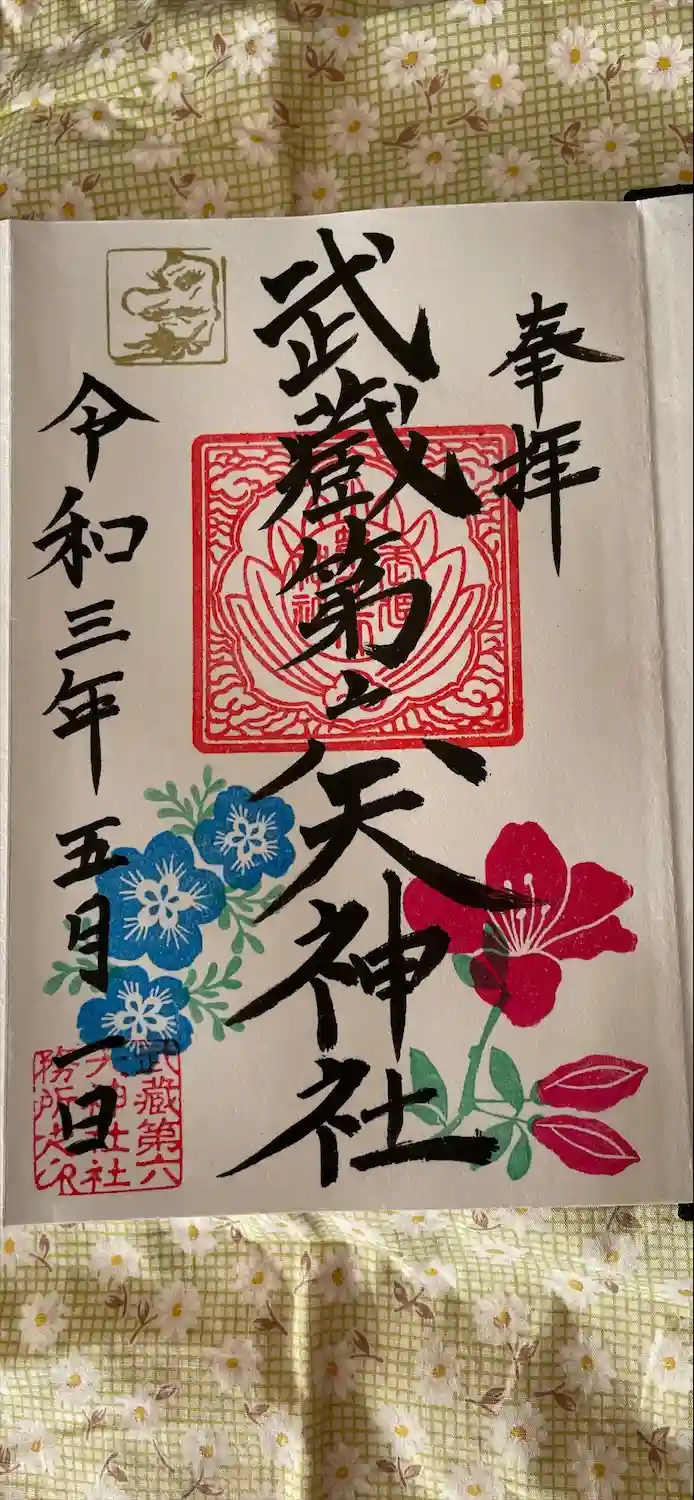 奉拝
武蔵第六天神社
令和三年五月一日
武蔵第六
天神社社
務所之印